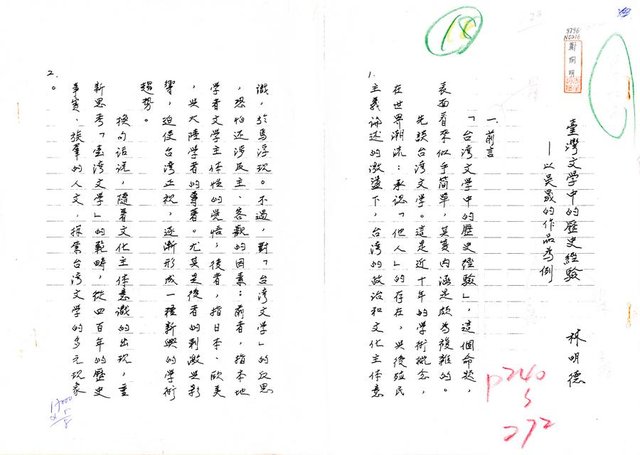 臺灣文學中的歷史經驗
──以吳晟的作品為例
林明德
一、前言
「台灣文学中的歷史經驗」，這個命題，
表面看來似乎簡單，其實內涵是頗為複雜的。
先談台灣文学。這是近十年的學術概念，
在世界潮流：承認「他人」的存在，與後殖民
主義論述的激盪下，台灣的政治和文化主体意
1.
識，於焉浮現。不過，對「台灣文学」的反思
，恐怕還得反主、客觀的因素：前者，指本地
學者文学主体性的覺悟，後者，指日本、歐美
，與大陸學者的專著。尤其是後者的刺激與影
響，迫使台灣正視，逐漸形成一種新興的学術
趨勢。
換句話說，隨著文化主体意識的出現，重
新思考「臺灣文学」的範疇，從四百年的歷史
事實、族羣的人文，探索台灣文学的多元現象
。
2.
18
p240
272